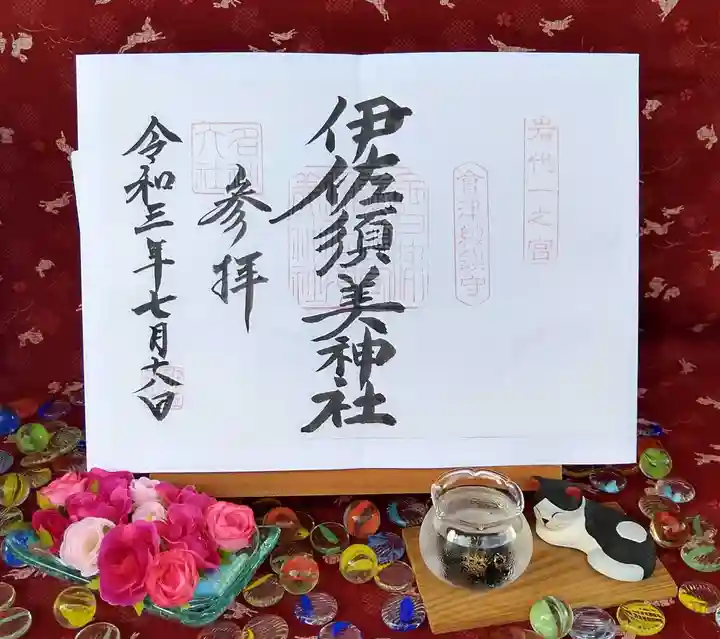 岩代一之宮
會津総鎮守
伊佐須美神社
參拝
令和三年七月十八日